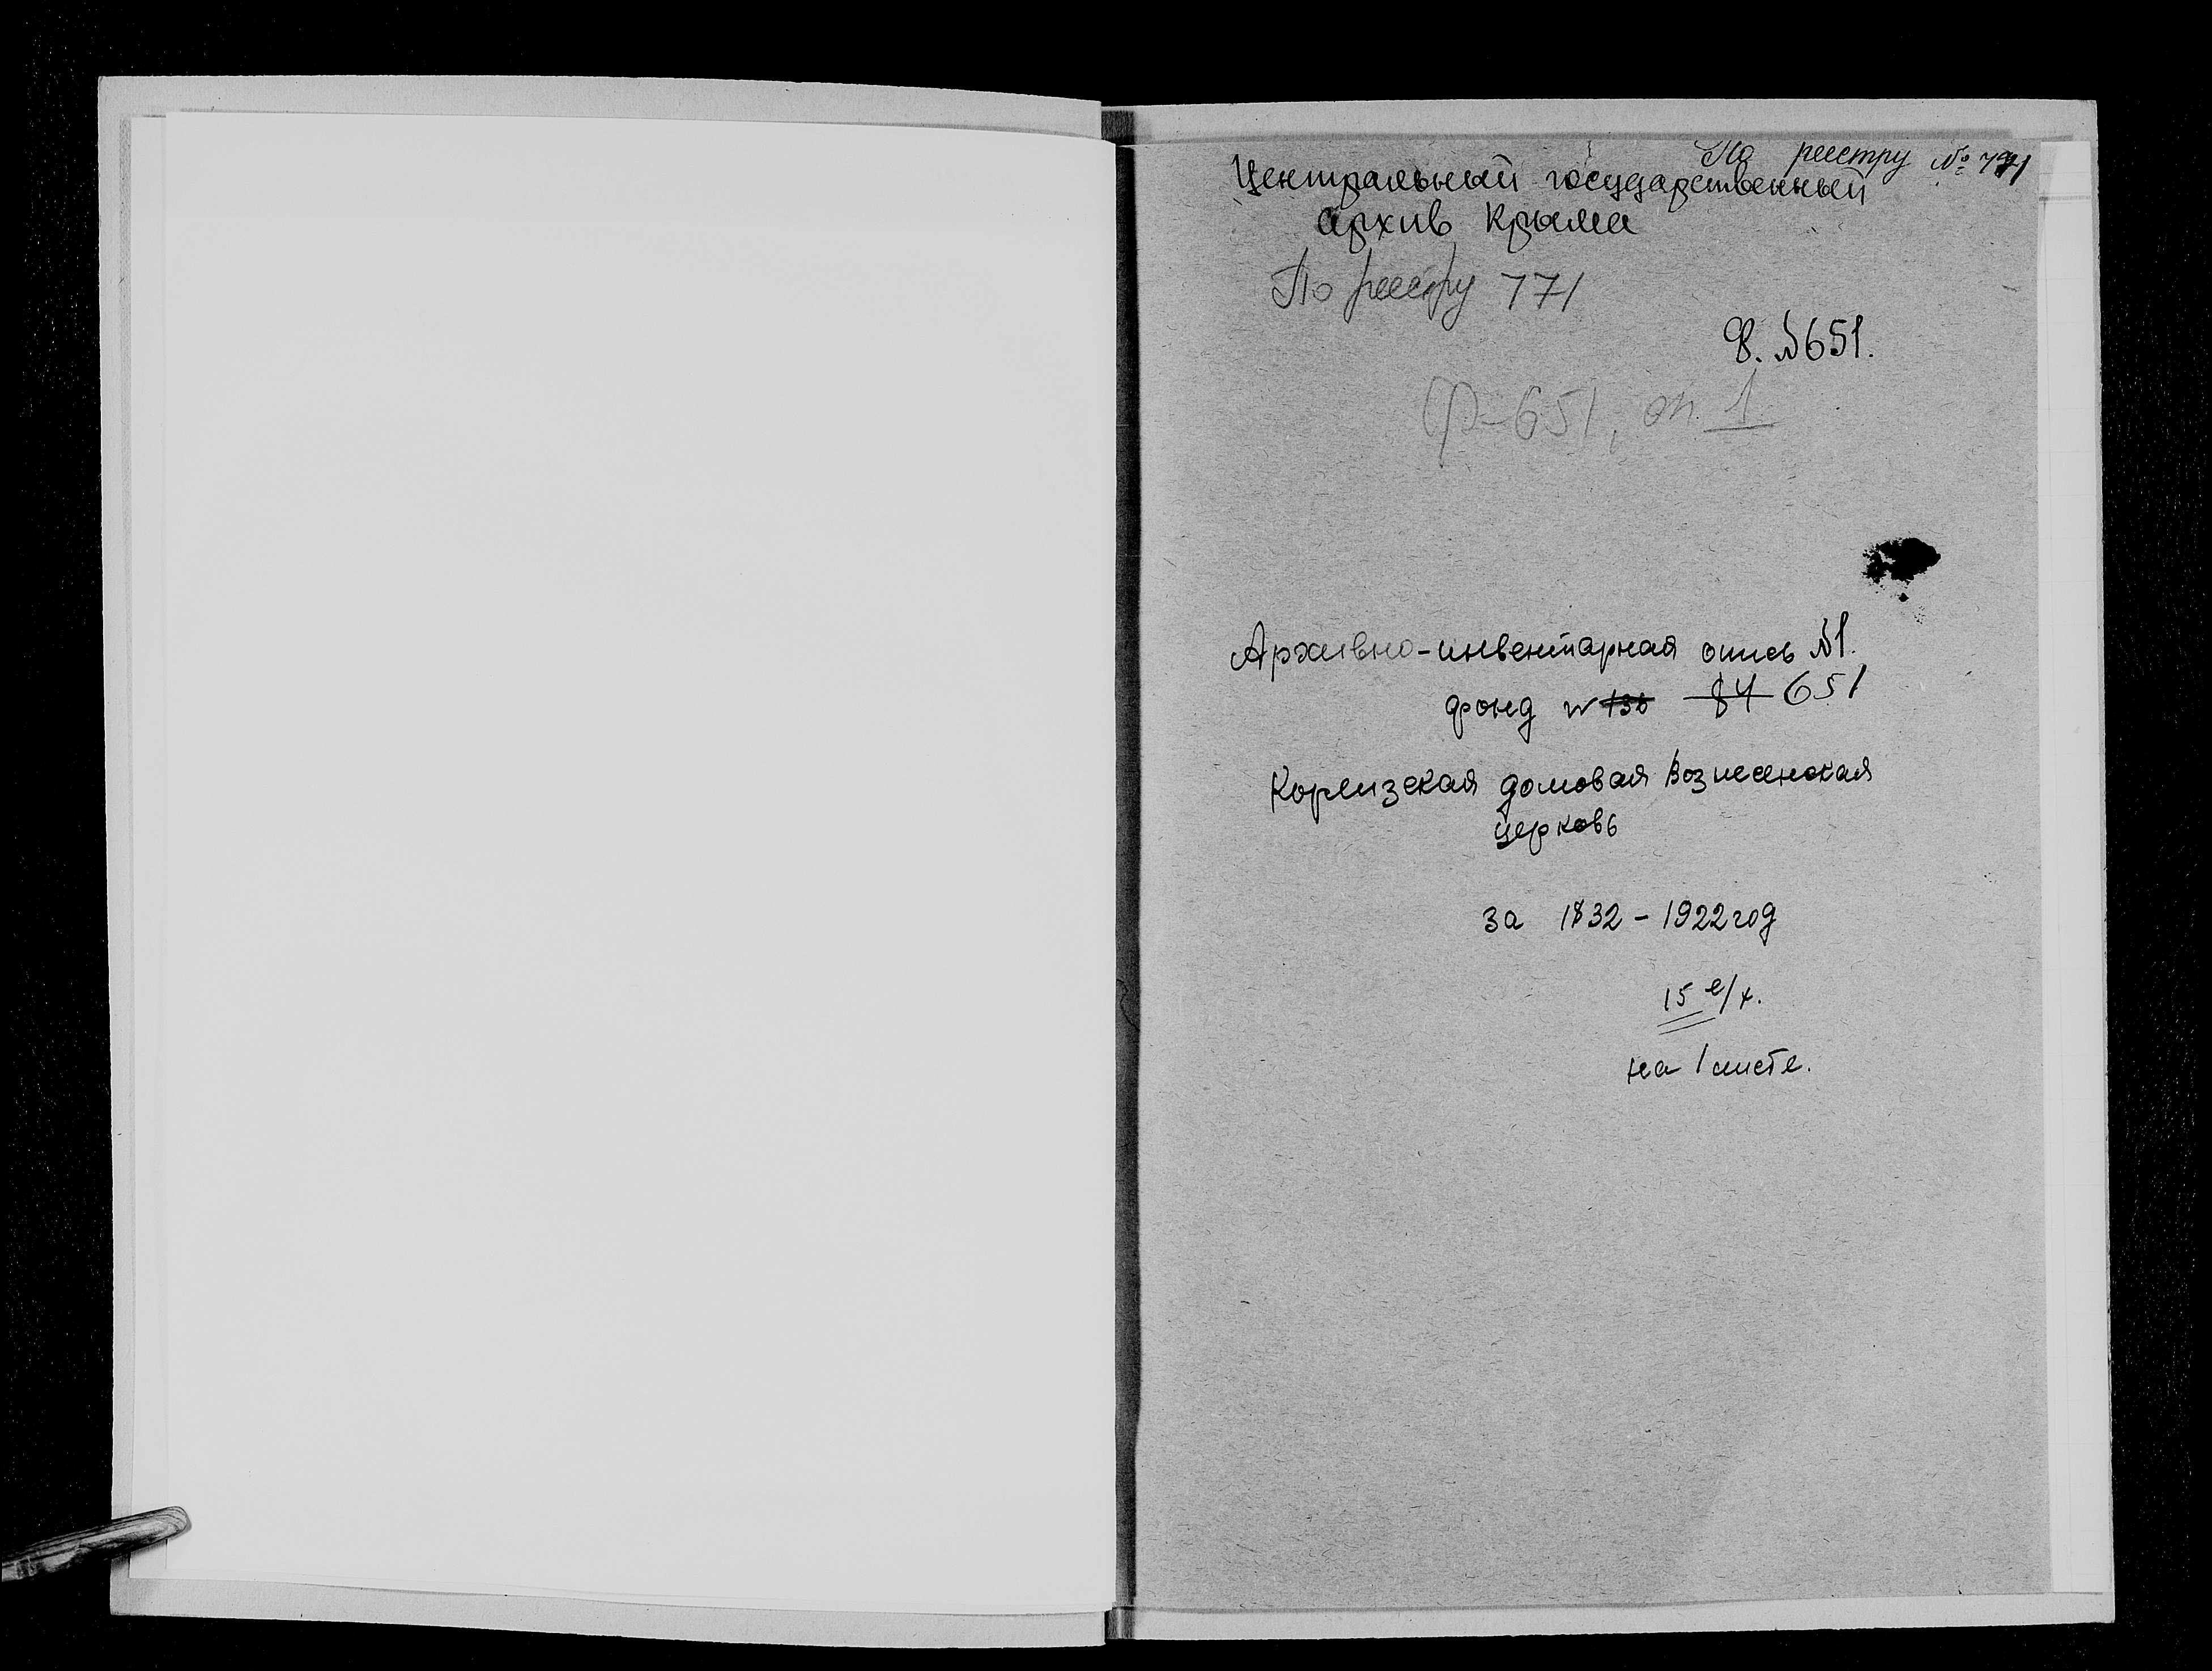 По реестру № 771
Центральный государственный
архив Крыма
По реестру 771
Ф. №651.
Ф-651, оп. 1
Архивно-инвентарная опись №1.
фонд № 136 84 651
Кореизская домовая Вознесенская
церковь
за 1832 - 1922 год
15 е/х.
на 1 листе.